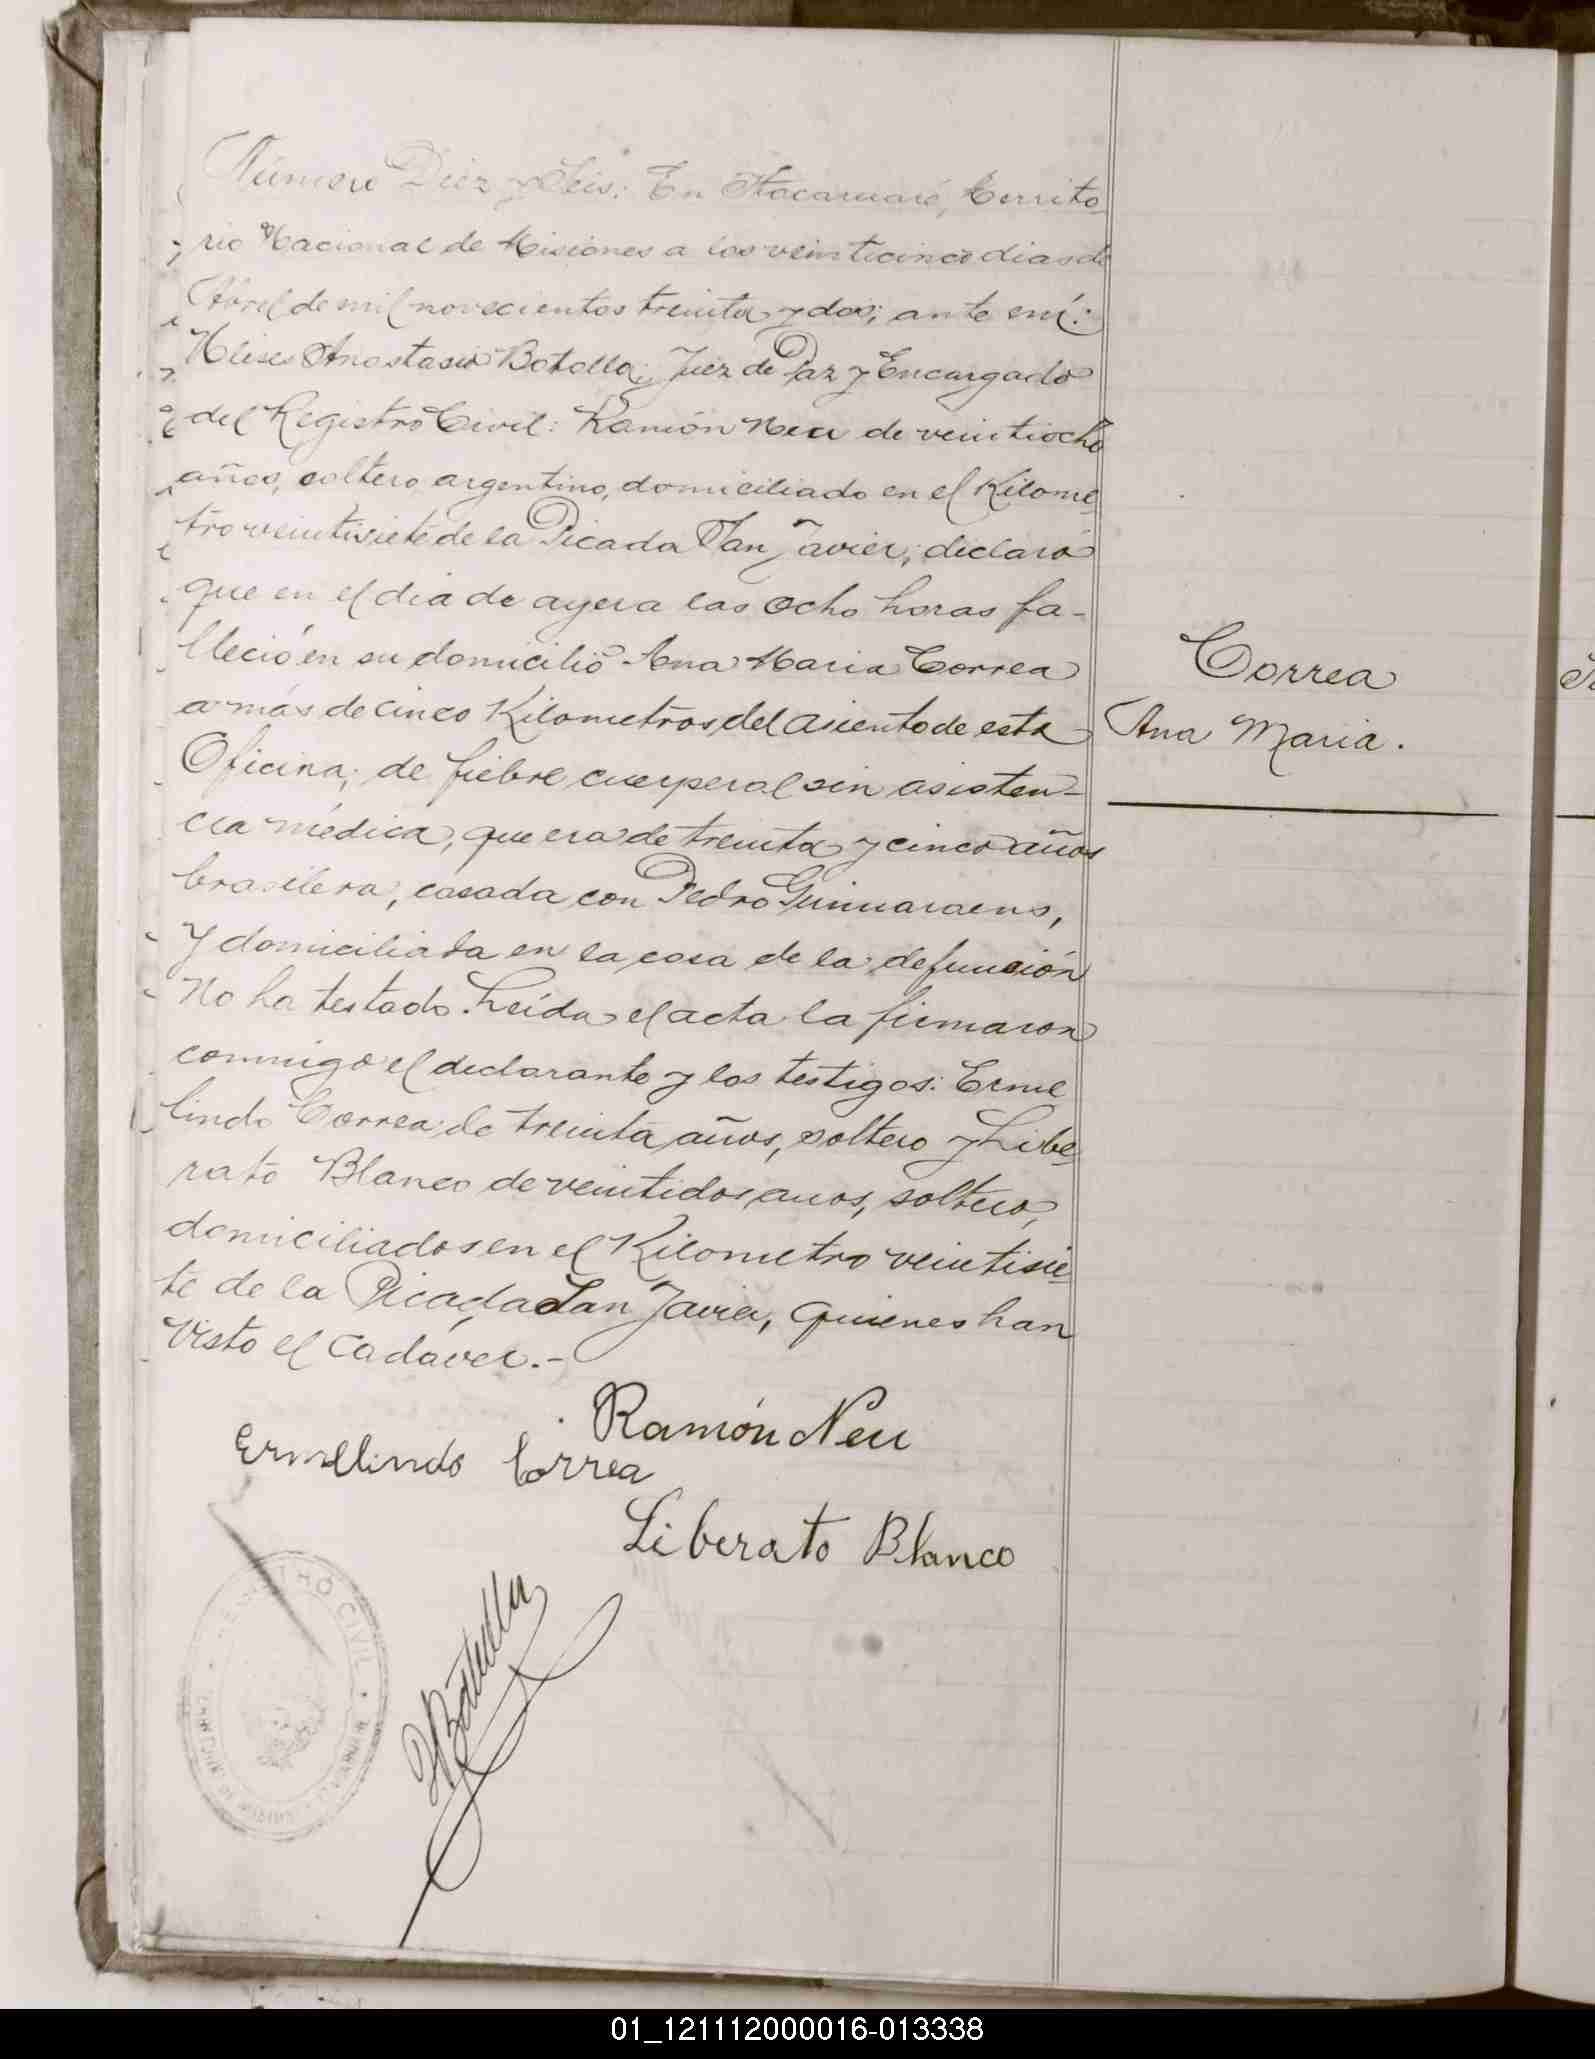 Número Diez y Seis: En Itacaruaré, Territo-
rio Nacional de Misiones a los veinticinco dias de
Abril de mil novecientos treinta y dos; ante mí:
Ulises Anastasio Botella; Juez de Paz y Encargado
del Registro Civil: Ramón Neu de veintiocho
años, soltero, argentino, domiciliado en el Kilome-
tro veintisiete de la Picada San Javier; declaró
que en el dia de ayer a las ocho horas fa-
lleció en su domicilio Ana Maria Correa
a más de cinco Kilometros del asiento de esta
Oficina; de fiebre cuerperal sin asisten-
cia médica, que era de treinta y cinco años
brasilera, casada con Pedro Guimaraens,
y domiciliada en la casa de la defunción
No ha testado. Leída el acta la firmaron
conmigo el declarante y los testigos: Erme
lindo Correa de treinta años, soltero y Libe-
rato Blanco de veintidos anos, soltero,
domiciliados en el Kilometro veintisie-
te de la Picada San Javier, quienes han
visto el cadáver.-
Correa
Ana Maria.
Ramón Neu
Ermelindo Correa
Liberato Blanco
UBotella
REGISTRO CIVIL
01_121112000016-013338